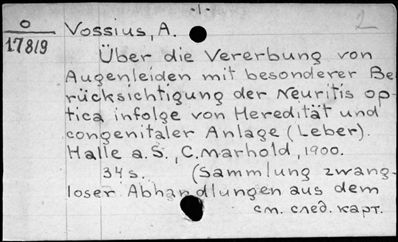 -1-
O
17819
Vossius, A.
2
Über die Vererbung von
Augenleiden mit besonderer Be
rücksichtigung der Neuritis op-
tica infolge von Heredität und
congenitaler Anlage (Leber).
Halle a.S., C. Marhold, 1900.
34 s. (Sammlung zwang-
loser Abhandlungen aus dem
см. след. карт.